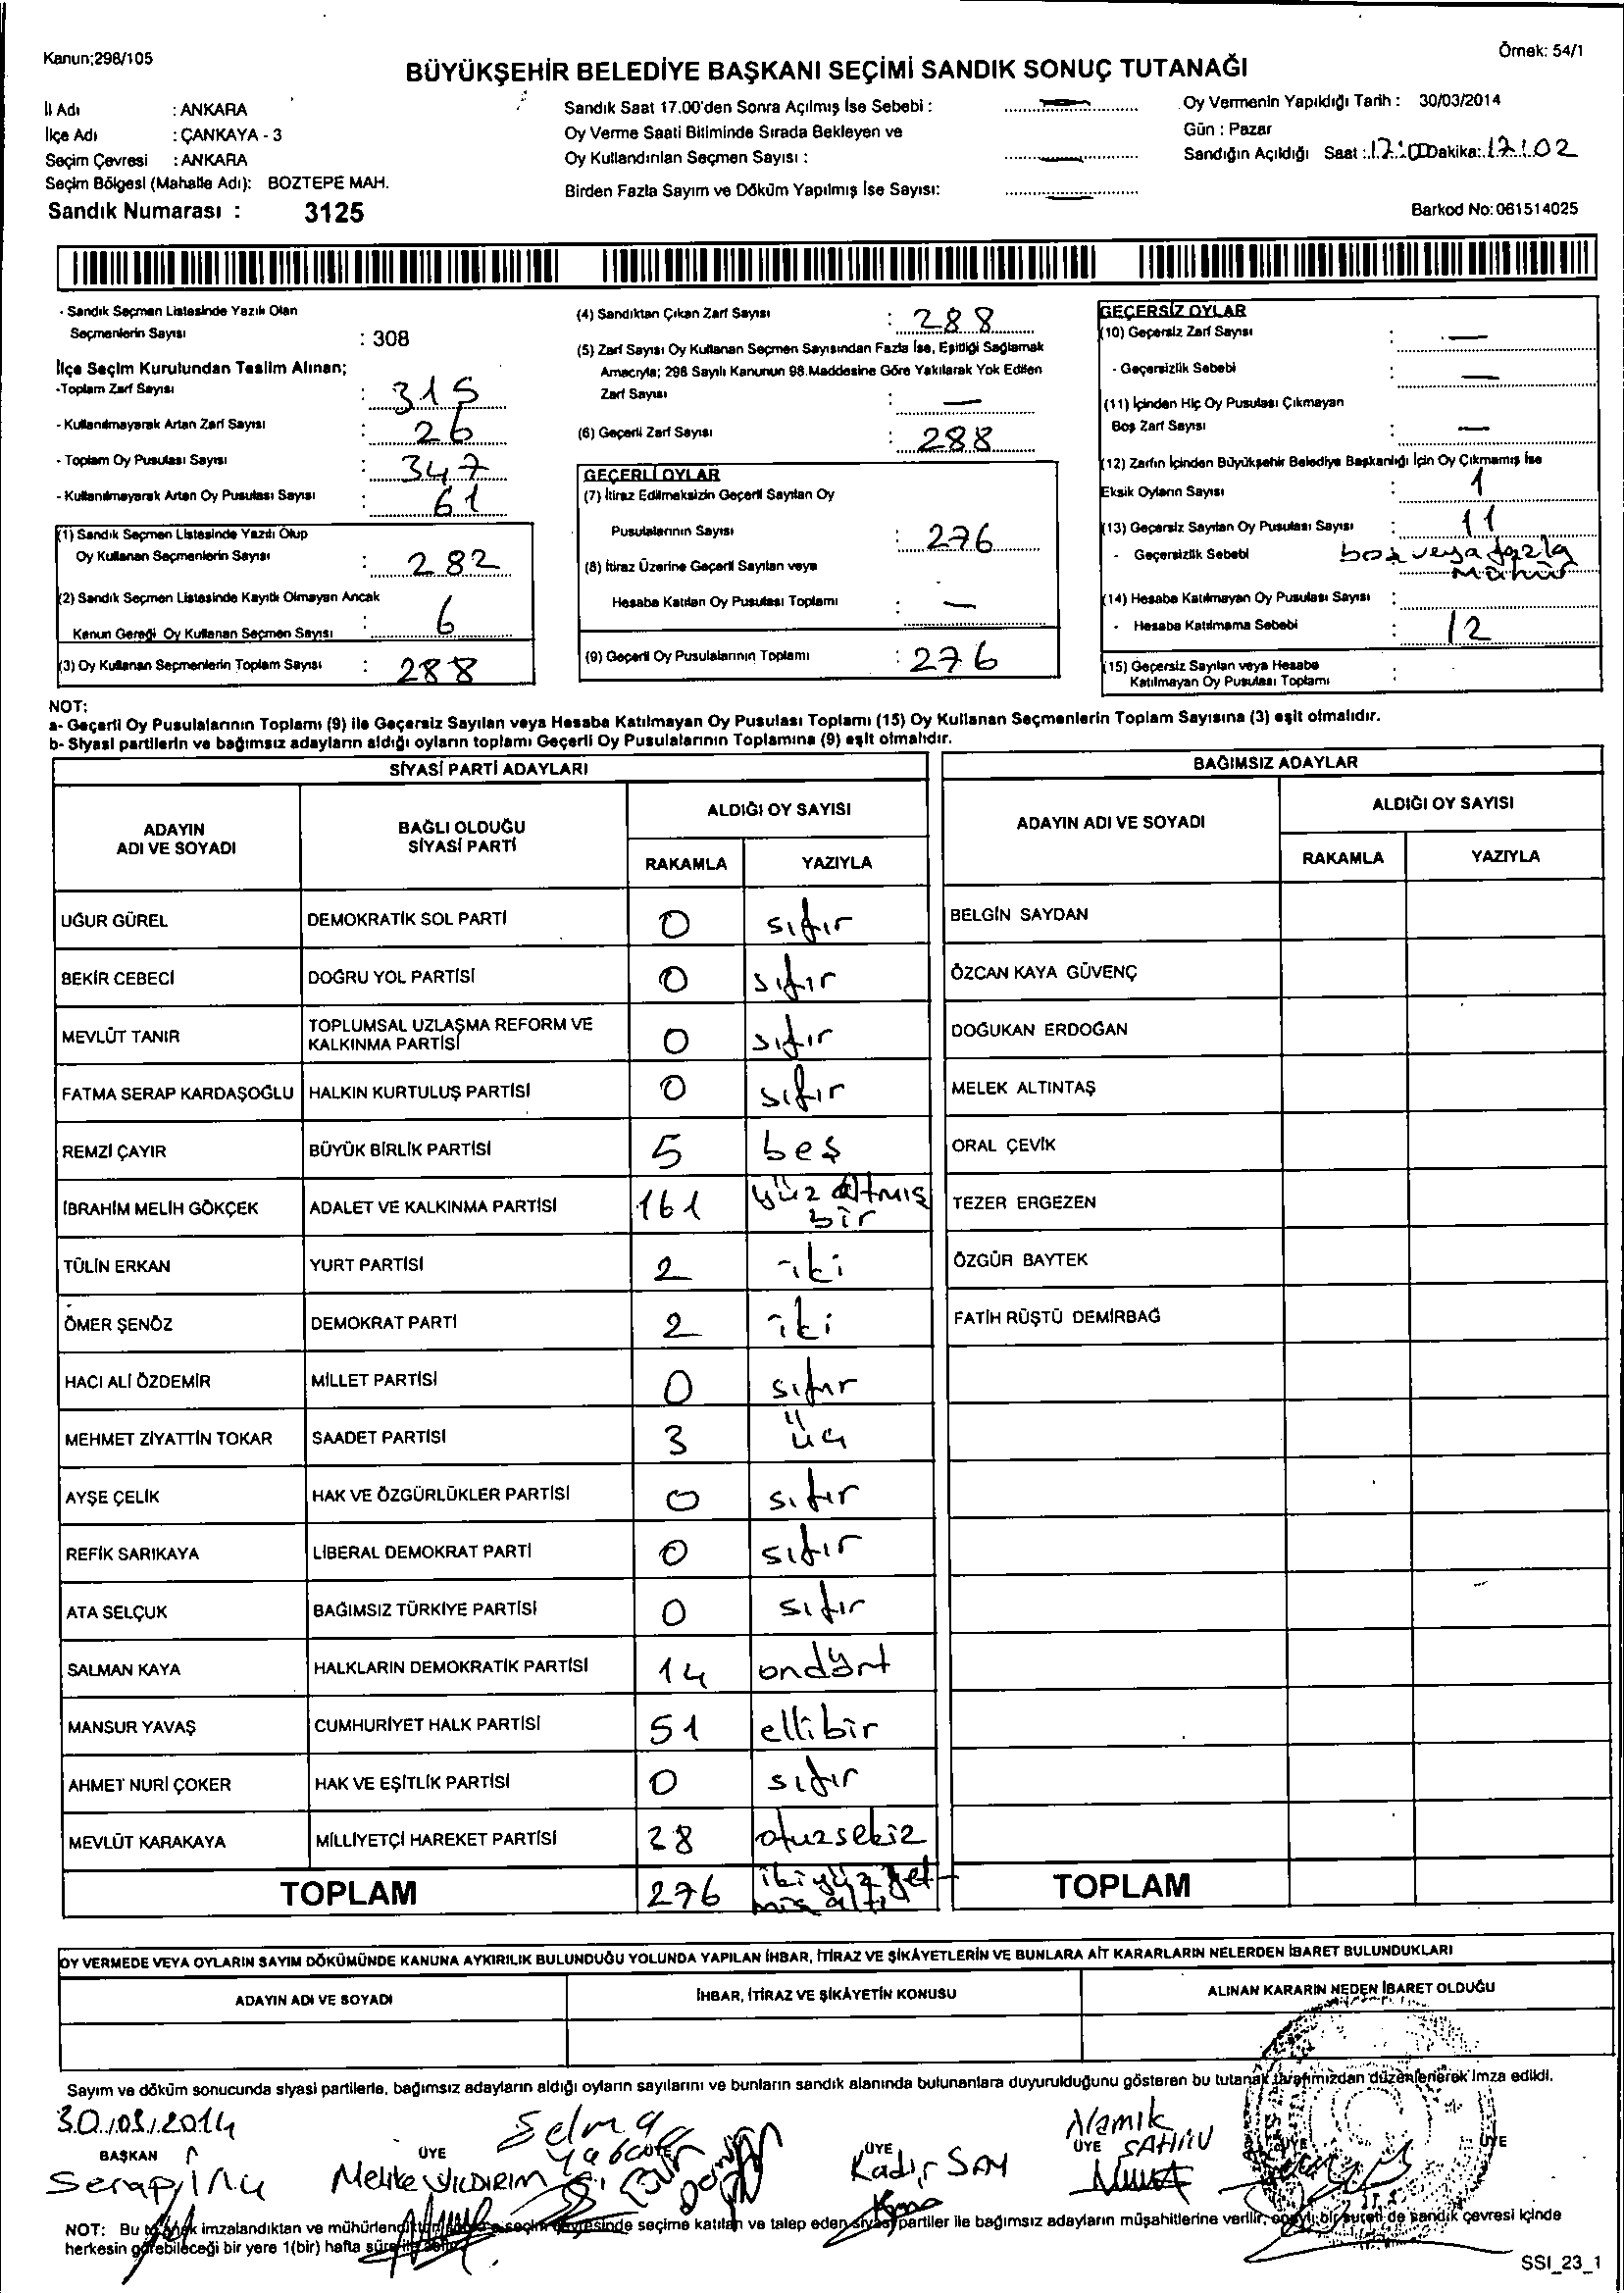 Kanun;298/105
Örnek: 54/1
BÜYÜKŞEHİR BELEDİYE BAŞKANI SEÇİMİ SANDIK SONUÇ TUTANAĞI
İl Adı : ANKARA
İlçe Adı : ÇANKAYA - 3
Seçim Çevresi : ANKARA
Seçim Bölgesi (Mahalle Adı): BOZTEPE MAH.
Sandık Numarası : 3125
Sandık Saat 17.00'den Sonra Açılmış İse Sebebi : —
Oy Verme Saati Bitiminde Sırada Bekleyen ve
Oy Kullandırılan Seçmen Sayısı : —
Birden Fazla Sayım ve Döküm Yapılmış İse Sayısı: —
Oy Vermenin Yapıldığı Tarih : 30/03/2014
Gün : Pazar
Sandığın Açıldığı Saat : 17:00 Dakika: 17:02
Barkod No: 061514025
- Sandık Seçmen Listesinde Yazılı Olan
Seçmenlerin Sayısı : 308
İlçe Seçim Kurulundan Teslim Alınan;
-Toplam Zarf Sayısı : 315
- Kullanılmayarak Artan Zarf Sayısı : 26
- Toplam Oy Pusulası Sayısı : 347
- Kullanılmayarak Artan Oy Pusulası Sayısı : 61
(1) Sandık Seçmen Listesinde Yazılı Olup
Oy Kullanan Seçmenlerin Sayısı : 282
(2) Sandık Seçmen Listesinde Kayıtlı Olmayan Ancak
Kanun Gereği Oy Kullanan Seçmen Sayısı : 6
(3) Oy Kullanan Seçmenlerin Toplam Sayısı : 288
(4) Sandıktan Çıkan Zarf Sayısı : 288
(5) Zarf Sayısı Oy Kullanan Seçmen Sayısından Fazla İse, Eşitliği Sağlamak
Amacıyla; 298 Sayılı Kanunun 98.Maddesine Göre Yakılarak Yok Edilen
Zarf Sayısı : —
(6) Geçerli Zarf Sayısı : 288
GEÇERLİ OYLAR
(7) İtiraz Edilmeksizin Geçerli Sayılan Oy
Pusulalarının Sayısı : 276
(8) İtiraz Üzerine Geçerli Sayılan veya
Hesaba Katılan Oy Pusulası Toplamı : —
(9) Geçerli Oy Pusulalarının Toplamı : 276
GEÇERSİZ OYLAR
(10) Geçersiz Zarf Sayısı : —
- Geçersizlik Sebebi : —
(11) İçinden Hiç Oy Pusulası Çıkmayan
Boş Zarf Sayısı : —
(12) Zarfın İçinden Büyükşehir Belediye Başkanlığı İçin Oy Çıkmamış İse
Eksik Oyların Sayısı : 1
(13) Geçersiz Sayılan Oy Pusulası Sayısı : 11
- Geçersizlik Sebebi boş veya fazla
Mühür
(14) Hesaba Katılmayan Oy Pusulası Sayısı :
- Hesaba Katılmama Sebebi : 12
(15) Geçersiz Sayılan veya Hesaba
Katılmayan Oy Pusulası Toplamı :
NOT:
a- Geçerli Oy Pusulalarının Toplamı (9) ile Geçersiz Sayılan veya Hesaba Katılmayan Oy Pusulası Toplamı (15) Oy Kullanan Seçmenlerin Toplam Sayısına (3) eşit olmalıdır.
b- Siyasi partilerin ve bağımsız adayların aldığı oyların toplamı Geçerli Oy Pusulalarının Toplamına (9) eşit olmalıdır.
SİYASİ PARTİ ADAYLARI
ADAYIN
ADI VE SOYADI
BAĞLI OLDUĞU
SİYASİ PARTİ
ALDIĞI OY SAYISI
RAKAMLA YAZIYLA
UĞUR GÜREL DEMOKRATİK SOL PARTİ 0 sıfır
BEKİR CEBECİ DOĞRU YOL PARTİSİ 0 sıfır
MEVLÜT TANIR TOPLUMSAL UZLAŞMA REFORM VE
KALKINMA PARTİSİ 0 sıfır
FATMA SERAP KARDAŞOĞLU HALKIN KURTULUŞ PARTİSİ 0 sıfır
REMZİ ÇAYIR BÜYÜK BİRLİK PARTİSİ 5 beş
İBRAHİM MELİH GÖKÇEK ADALET VE KALKINMA PARTİSİ 161 yüz altmış
bir
TÜLİN ERKAN YURT PARTİSİ 2 iki
ÖMER ŞENÖZ DEMOKRAT PARTİ 2 iki
HACI ALİ ÖZDEMİR MİLLET PARTİSİ 0 sıfır
MEHMET ZİYATTİN TOKAR SAADET PARTİSİ 3 üç
AYŞE ÇELİK HAK VE ÖZGÜRLÜKLER PARTİSİ 0 sıfır
REFİK SARIKAYA LİBERAL DEMOKRAT PARTİ 0 sıfır
ATA SELÇUK BAĞIMSIZ TÜRKİYE PARTİSİ 0 sıfır
SALMAN KAYA HALKLARIN DEMOKRATİK PARTİSİ 14 ondört
MANSUR YAVAŞ CUMHURİYET HALK PARTİSİ 51 ellibir
AHMET NURİ ÇOKER HAK VE EŞİTLİK PARTİSİ 0 sıfır
MEVLÜT KARAKAYA MİLLİYETÇİ HAREKET PARTİSİ 38 otuzsekiz
TOPLAM 276 ikiyüz yet-
miş altı
BAĞIMSIZ ADAYLAR
ADAYIN ADI VE SOYADI
ALDIĞI OY SAYISI
RAKAMLA YAZIYLA
BELGİN SAYDAN
ÖZCAN KAYA GÜVENÇ
DOĞUKAN ERDOĞAN
MELEK ALTINTAŞ
ORAL ÇEVİK
TEZER ERGEZEN
ÖZGÜR BAYTEK
FATİH RÜŞTÜ DEMİRBAĞ
TOPLAM
OY VERMEDE VEYA OYLARIN SAYIM DÖKÜMÜNDE KANUNA AYKIRILIK BULUNDUĞU YOLUNDA YAPILAN İHBAR, İTİRAZ VE ŞİKÂYETLERİN VE BUNLARA AİT KARARLARIN NELERDEN İBARET BULUNDUKLARI
ADAYIN ADI VE SOYADI
İHBAR, İTİRAZ VE ŞİKÂYETİN KONUSU
ALINAN KARARIN NEDEN İBARET OLDUĞU
Sayım ve döküm sonucunda siyasi partilerle, bağımsız adayların aldığı oyların sayılarını ve bunların sandık alanında bulunanlara duyurulduğunu gösteren bu tutanak tarafımızdan düzenlenerek imza edildi.
30/03/2014
BAŞKAN
ÜYE
Melike YILDIRIM
Selma
ÜYE
Kadir SAY
Namık
ÜYE ŞAHİN
ÜYE
NOT: Bu tutanak imzalandıktan ve mühürlendikten sonra seçim çevresinde seçime katılan ve talep eden siyasi partiler ile bağımsız adayların müşahitlerine verilir, onaylı bir sureti de sandık çevresi içinde
herkesin görebileceği bir yere 1(bir) hafta süre ile asılır.
SSI_23_1